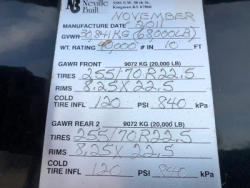 Neville
Built
5301 S.W. 36th St.
Kingman KS 67068
NOVEMBER
MANUFACTURE DATE 2011
GVWR 30,841 KG (68000LB)
WT. RATING 40000 # IN 10 FT
GAWR FRONT 9072 KG (20,000 LB)
TIRES 255/70R22.5
RIMS 8.25X22.5
COLD
TIRE INFL 120 PSI 840 kPa
GAWR REAR 2 9072 KG (20,000 LB)
TIRES 255/70R22.5
RIMS 8.25X22.5
COLD
TIRE INFL 120 PSI 840 kPa